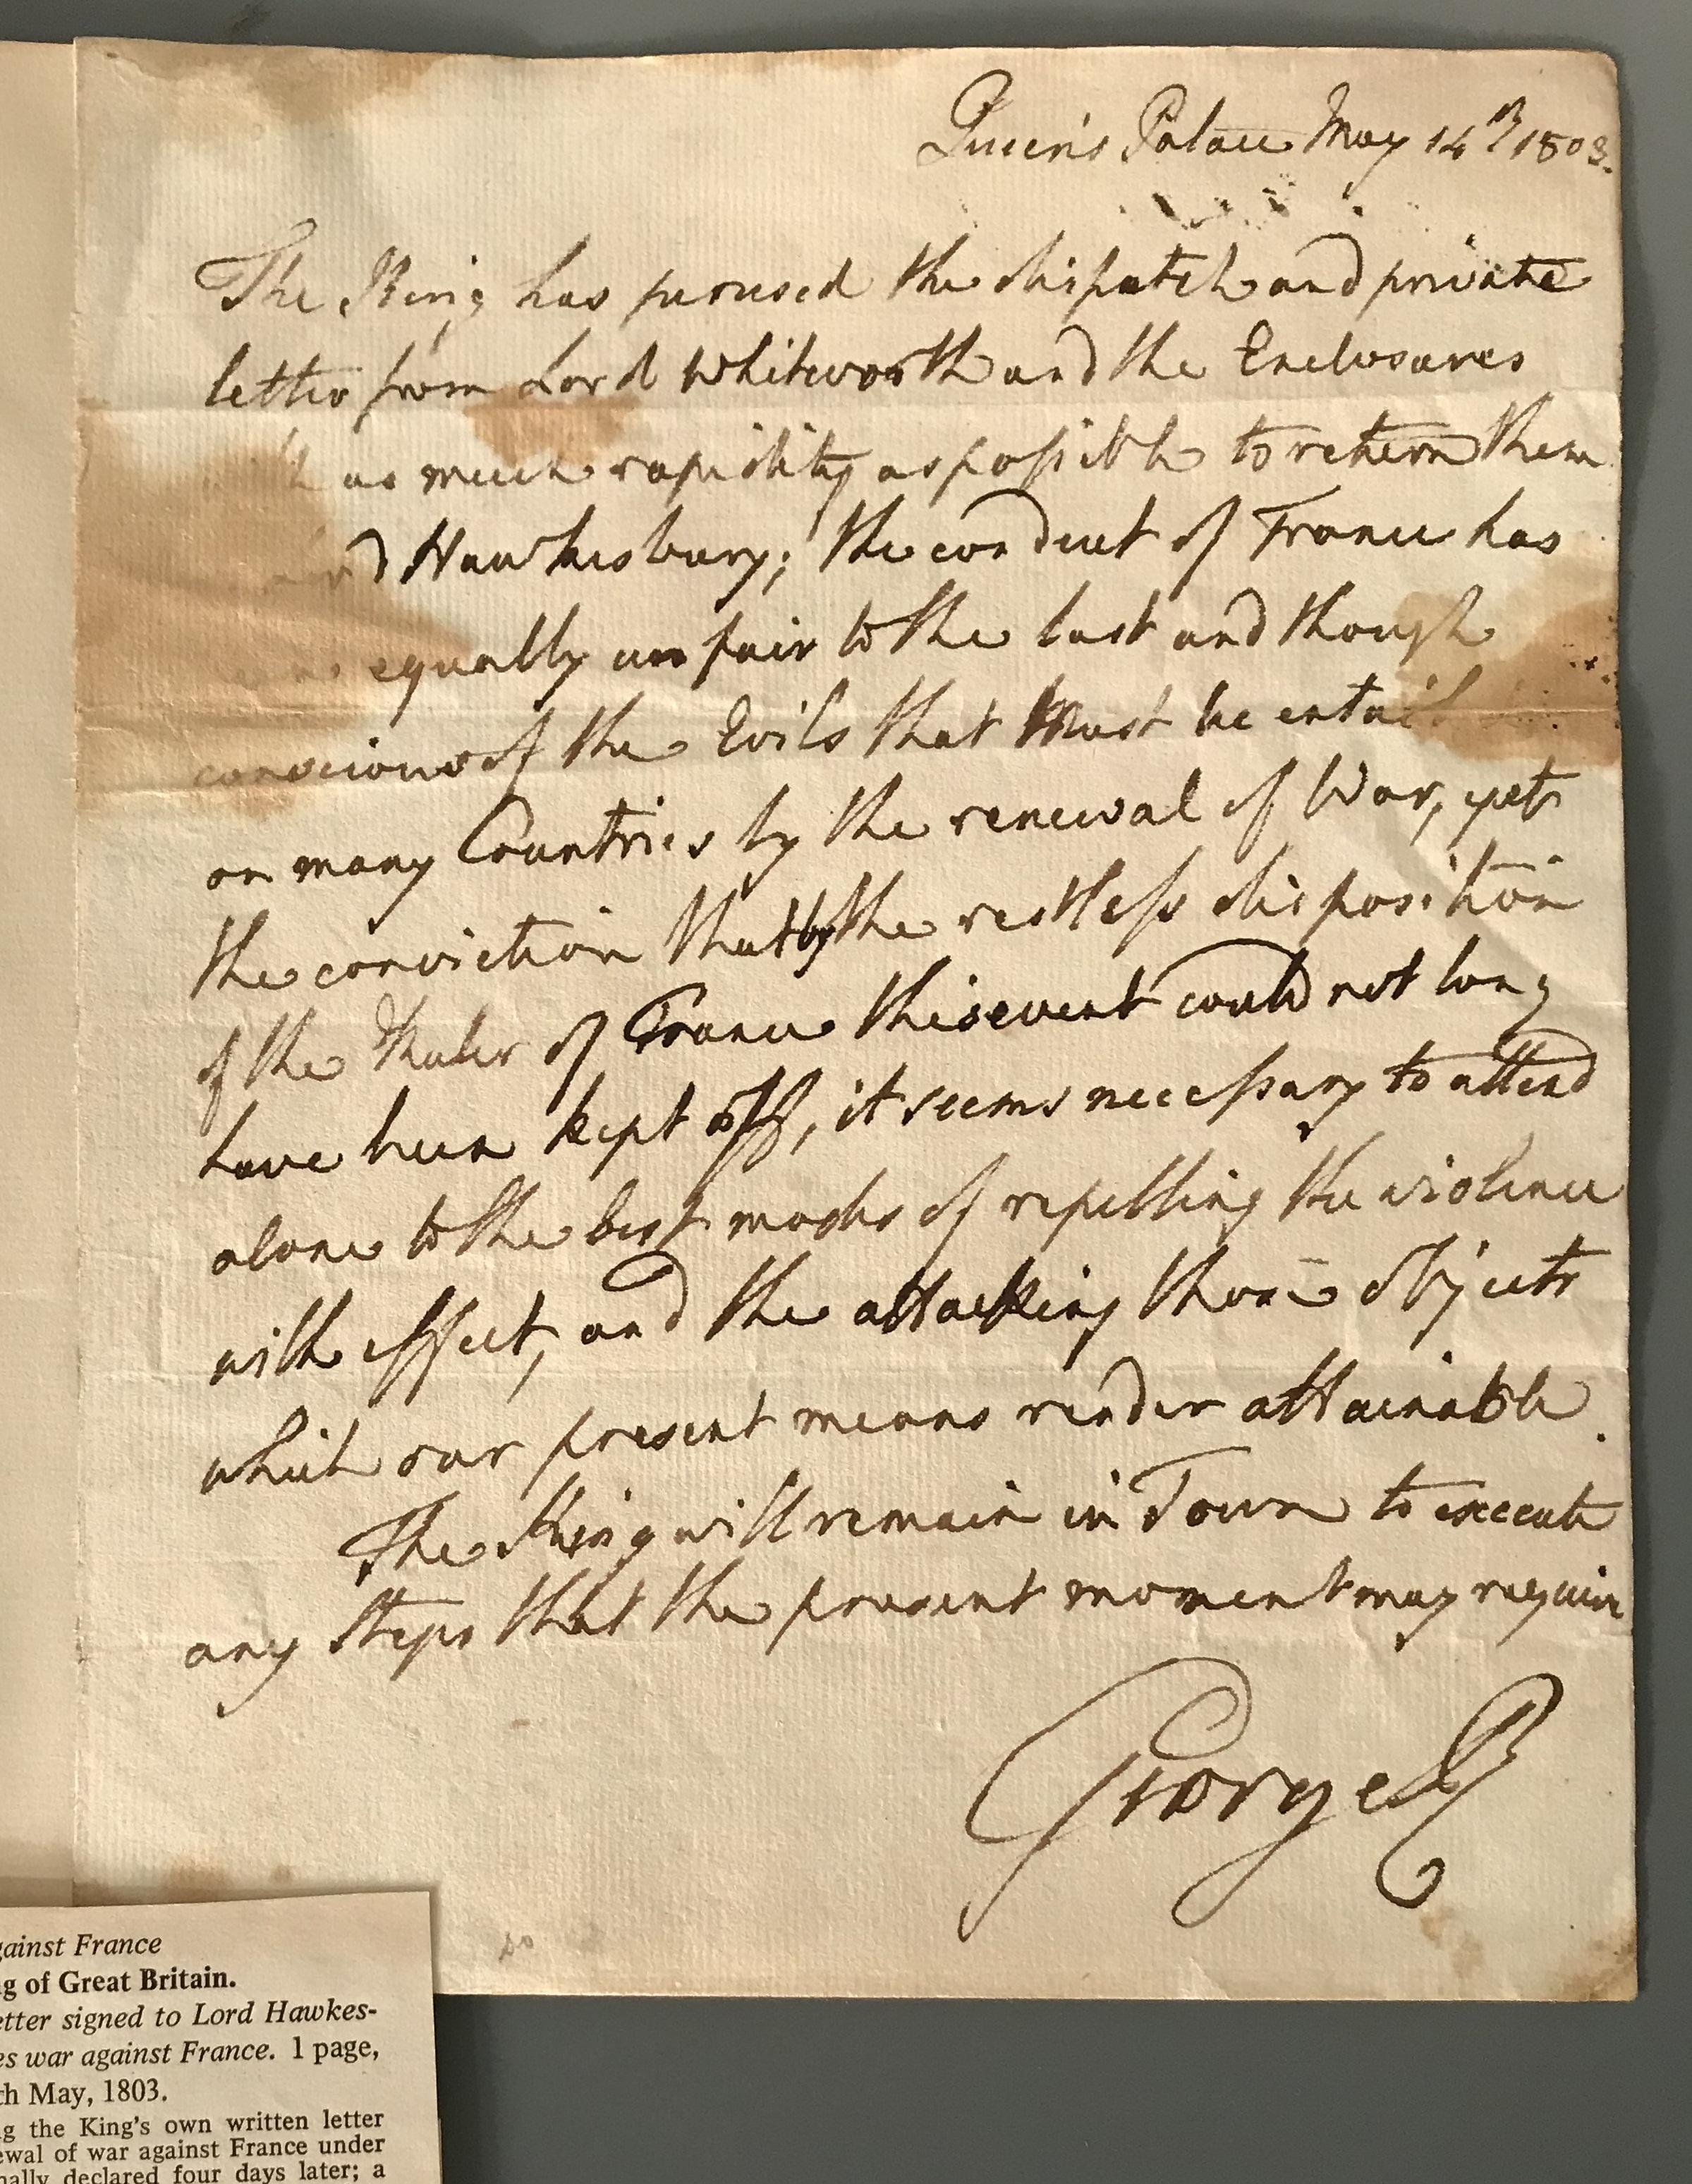 Queen's Palace May 14th 1803.
The King has perused the dispatch and private
letter from Lord Whitworth and the Enclosures
as much rapidity as possible to return them
Hawkesbury; the conduct of France has
equally unfair to the last and though
conscious of the Evils that must be
on many Countries by the renewal of War, yet
the conviction that by the restless disposition
of the Ruler of France this event could not long
have been kept off, it seems necessary to attend
alone to the best modes of repelling the violence
with effect, and the attacking those objects
which our present means render attainable.
The King will remain in Town to execute
any Steps that the present moment may require
George R
gainst France
g of Great Britain.
etter signed to Lord Hawkes-
es war against France. 1 page,
th May, 1803.
g the King's own written letter
ewal of war against France under
nally declared four days later; a